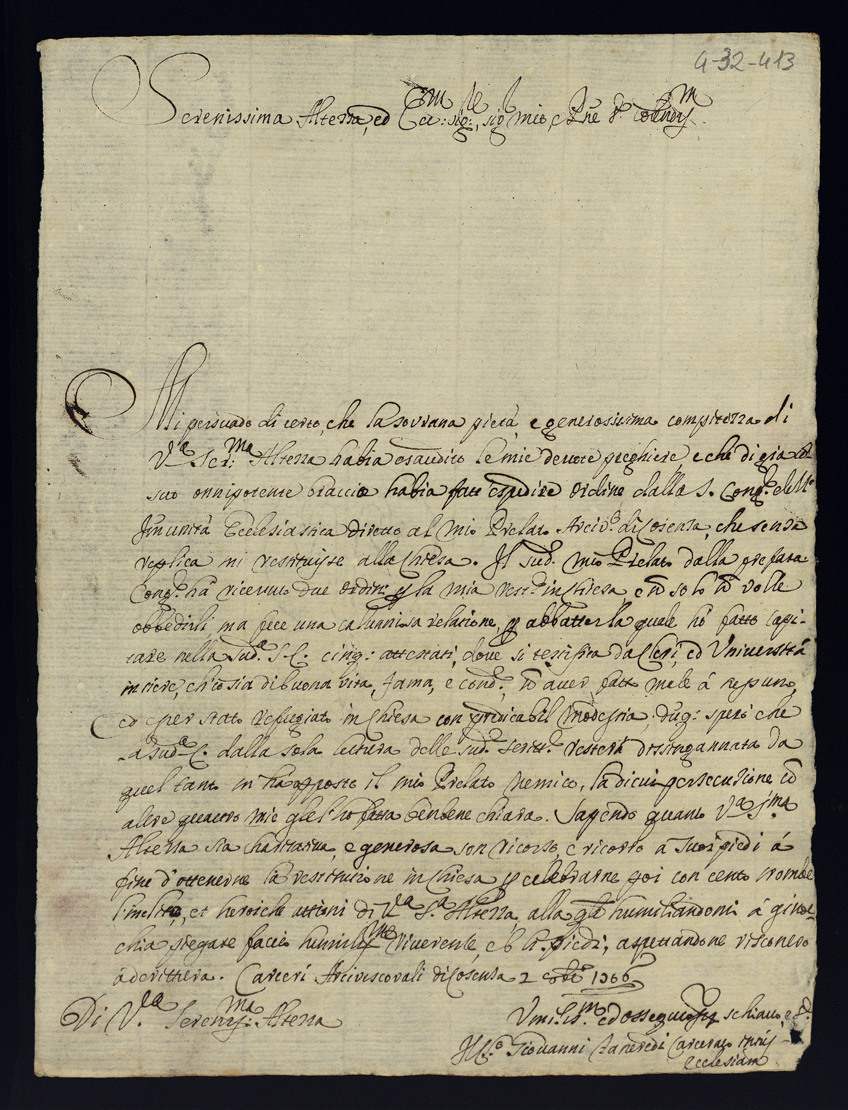 4-32-413
Serenissima Altezza, ed Ecc: sig:, sig mio, e Pne
Mi persuado di certo, che la sovrana pietà, e generosissima compitezza di
V.a Ser:ma Altezza habia esaudito le mie devote preghiere, e che di già col
suo onnipotente braccio habia fatt' espedire ordine dalla S. Cong.e dell'
Immunità Ecclesiastica diretto al mio Prelato Arciv.o di Cosenza, che senza
replica mi restituisse alla Chiesa. Il sud.o mio Prelato dalla prefata
Cong.e ha ricevuto due ordini p la mia rest.e in Chiesa, e n solo n volle
obbedirli ma fece una caluniosa relatione, p abbatter la quale hò fatto capi-
tare nella sud.a S. C. cinq: attestati, dove si testifica da Cleri, ed Università
intiere, ch'io sia di buona vita, fama, e cond.e, n aver fatto male à nessuno,
ed esser stato refugiato in Chiesa con predicabil modestia, dug: spero che
la sud.a C. dalla sola lettura delle sud.e scritt.e resterà disingannata da
quel tanto m'ha opposto il mio Prelato nemico, la di cui persecuzione co
altre quattro mie gliel'hò fatta benbene chiara. Sapendo quanto V.a S.ma
Altezza sia charitativa, e generosa son ricorso e ricorro a suoi piedi à
fine d'ottenerne la restituzione in Chiesa p celebrarne poi con cento trombe
l'inclite, et heroiche attioni di V.a S.a Altezza, alla q.le humiliandomi à ginoc-
chia piegate faccio humiliss.ma riverente, e b li piedi, aspettandone riscontro
à dirittura. Carceri Arcivescovali di Cosenza 2 1706
Di V.a Sereniss:ma Altezza
Um.mo ed ossequiosiss schiavo e
Giovanni Tancredi carcerato
Ecclesiam